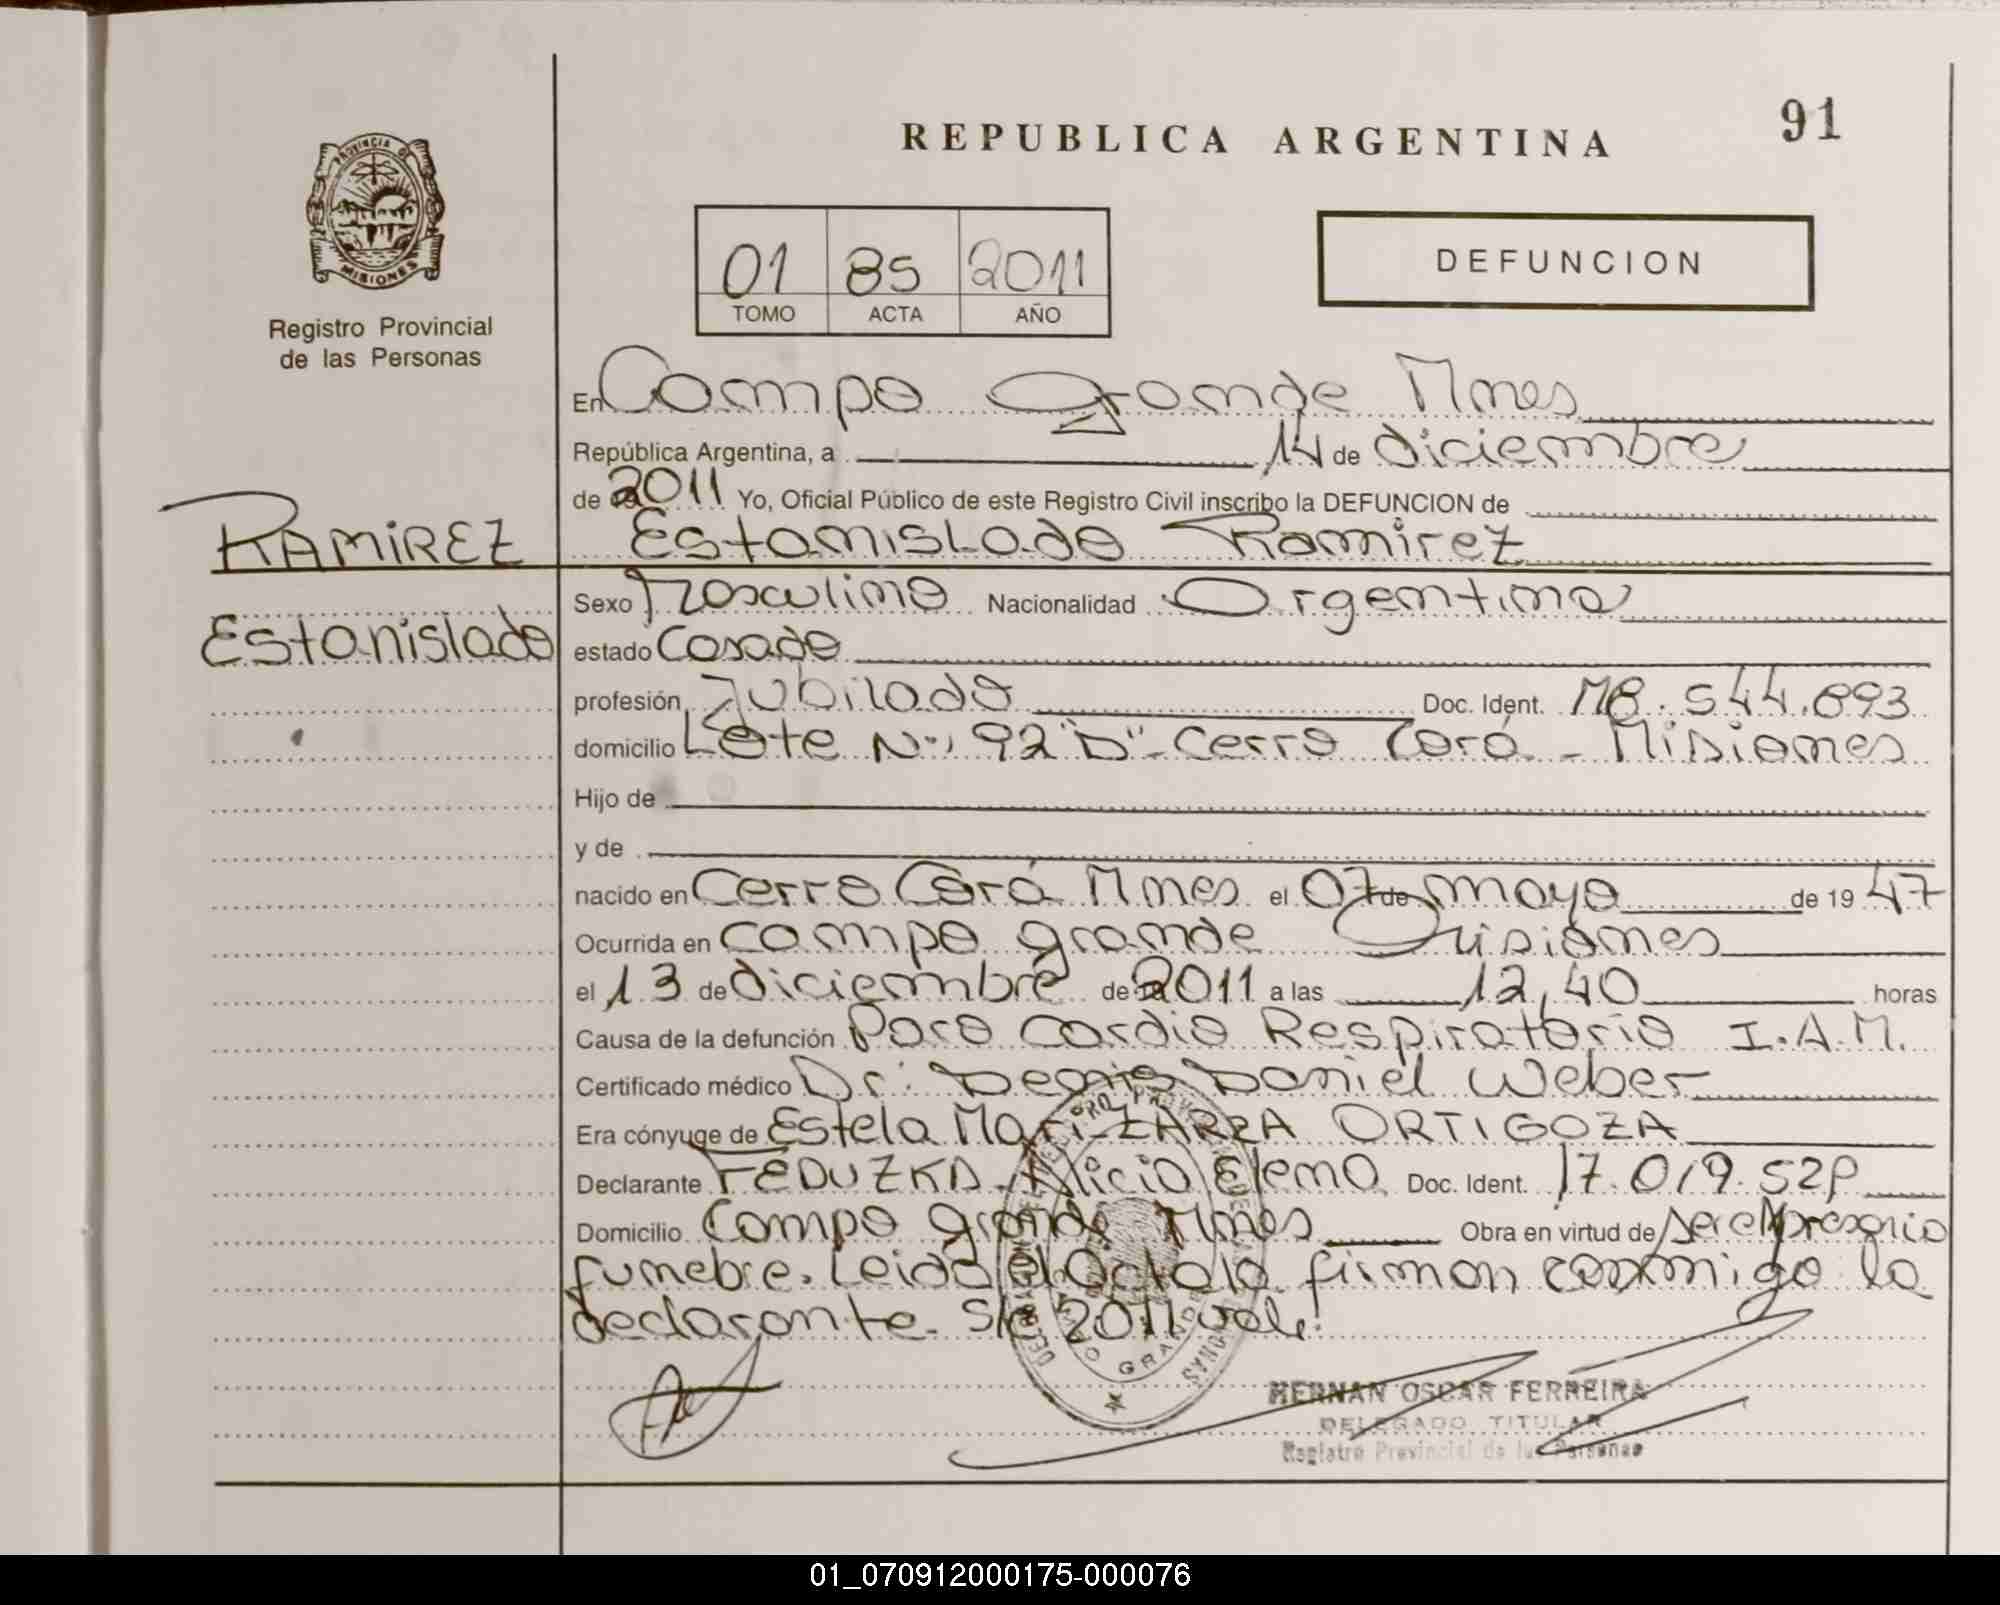 91
REPUBLICA ARGENTINA
PROVINCIA DE
MISIONES
Registro Provincial
de las Personas
01 85 2011
TOMO ACTA AÑO
DEFUNCION
En Campo Grande Mnes
República Argentina, a 14 de diciembre
de 2011 Yo, Oficial Público de este Registro Civil inscribo la DEFUNCION de
RAMIREZ Estanislado Ramirez
Sexo Masculino Nacionalidad Argentina
Estanislado estado Casado
profesión Jubilado Doc. Ident. M8.544.893
domicilio Lote Nº 92 "D"- Cerro Corá - Misiones
Hijo de
y de
nacido en Cerro Corá Mnes el 07 de mayo de 19 47
Ocurrida en campo grande Misiones
el 13 de diciembre de 2011 a las 12,40 horas
Causa de la defunción Paro Cardio Respiratorio I.A.M.
Certificado médico Dr: Daniel Weber
Era cónyuge de Estela Mari ZARZA ORTIGOZA
Declarante Alicia Elena Doc. Ident.
Domicilio Campo grande Mnes Obra en virtud de ser empresario
funebre. Leida el Acta la firman conmigo la
declarante. S/e 2011 vale!
HERNAN OSCAR FERREIRA
DELEGADO TITULAR
Registro Provincial de las Personas
01_070912000175-000076